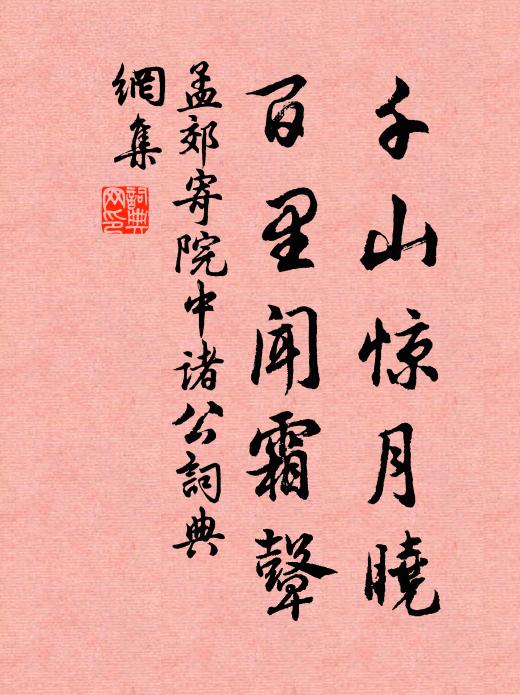 千山惊月曉
百里闻霜鼙
孟郊寄院中诸公詞典
網集
詞典
网印